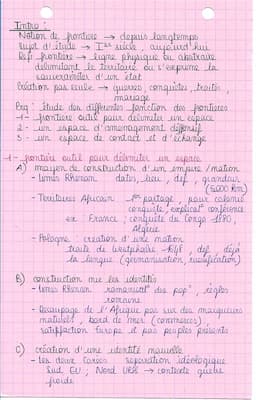 Intro :
Notion de frontière → depuis longtemps
sujet d'étude → Ier siècle, aujourd'hui
Def frontière → ligne physique ou abstraite
délimitant le territoire où s'exprime la
souveraineté d'un état
Création pas seule → guerres, conquêtes, traités,
mariage
Prq : étude des différentes fonction des frontières
-1- frontière outil pour délimiter un espace
2 - un espace d'amenagement défensif
-3- un espace de contact et d'échange
-1- frontière outil pour délimiter un espace
A) moyen de construction d'un empire / nation
- limes Rhénan dates, lieu, def, grandeur
(5000 km)
- Territoires Africain partage, pour colonie
conquête, explicat° conférence
ex France ; conquête du Congo 1880,
Algérie
- Pologne création d'une nation
traité de westphalie 1648 def déjà
la langue (germanisation, russification)
B) construction nie les identités
- limes Rhénan romanisat° des pop°, règles
romaine
- Découpage de l'Afrique pas sur des marqueurs
naturels, bord de mers (commerces),
satisfaction Europe et pas peuples présents
C) création d'une identité nouvelle
- les deux Corées séparation idéologique
Sud EU ; Nord URSS → contexte guerre
froide